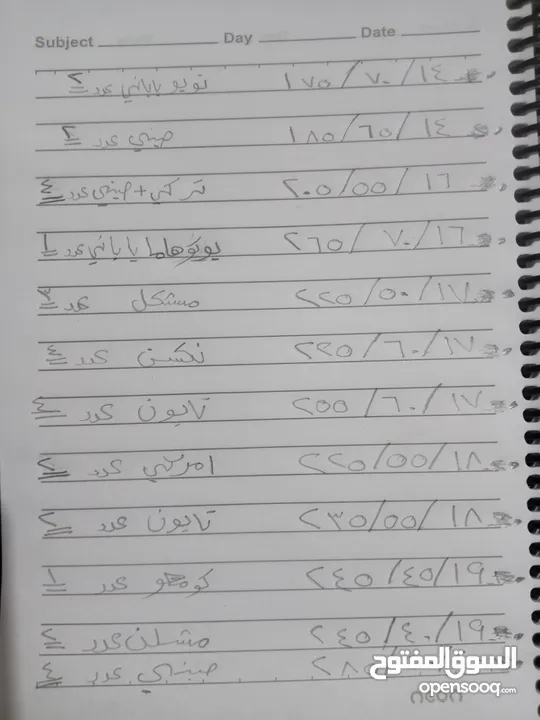 Subject Day Date
١٧٥/٧٠/١٤ تويو ياباني عدد ٢
١٨٥/٦٥/١٤ صيني عدد ٢
٢٠٥/٥٥/١٦ تركي + صيني عدد ٤
٢٦٥/٧٠/١٦ يوكوهاما ياباني عدد ١
٢٢٥/٥٠/١٧ مشكل عدد ٣
٢٢٥/٦٠/١٧ نكسن عدد ٤
٢٥٥/٦٠/١٧ تايون عدد ٤
٢٢٥/٥٥/١٨ امركي عدد ٢
٢٣٥/٥٥/١٨ تايون عدد ٢
٢٤٥/٤٥/١٩ كومهو عدد ١
٢٤٥/٤٠/١٩ مشلن عدد ٢
صيني عدد ٤
السوق المفتوح
opensooq.com
neon